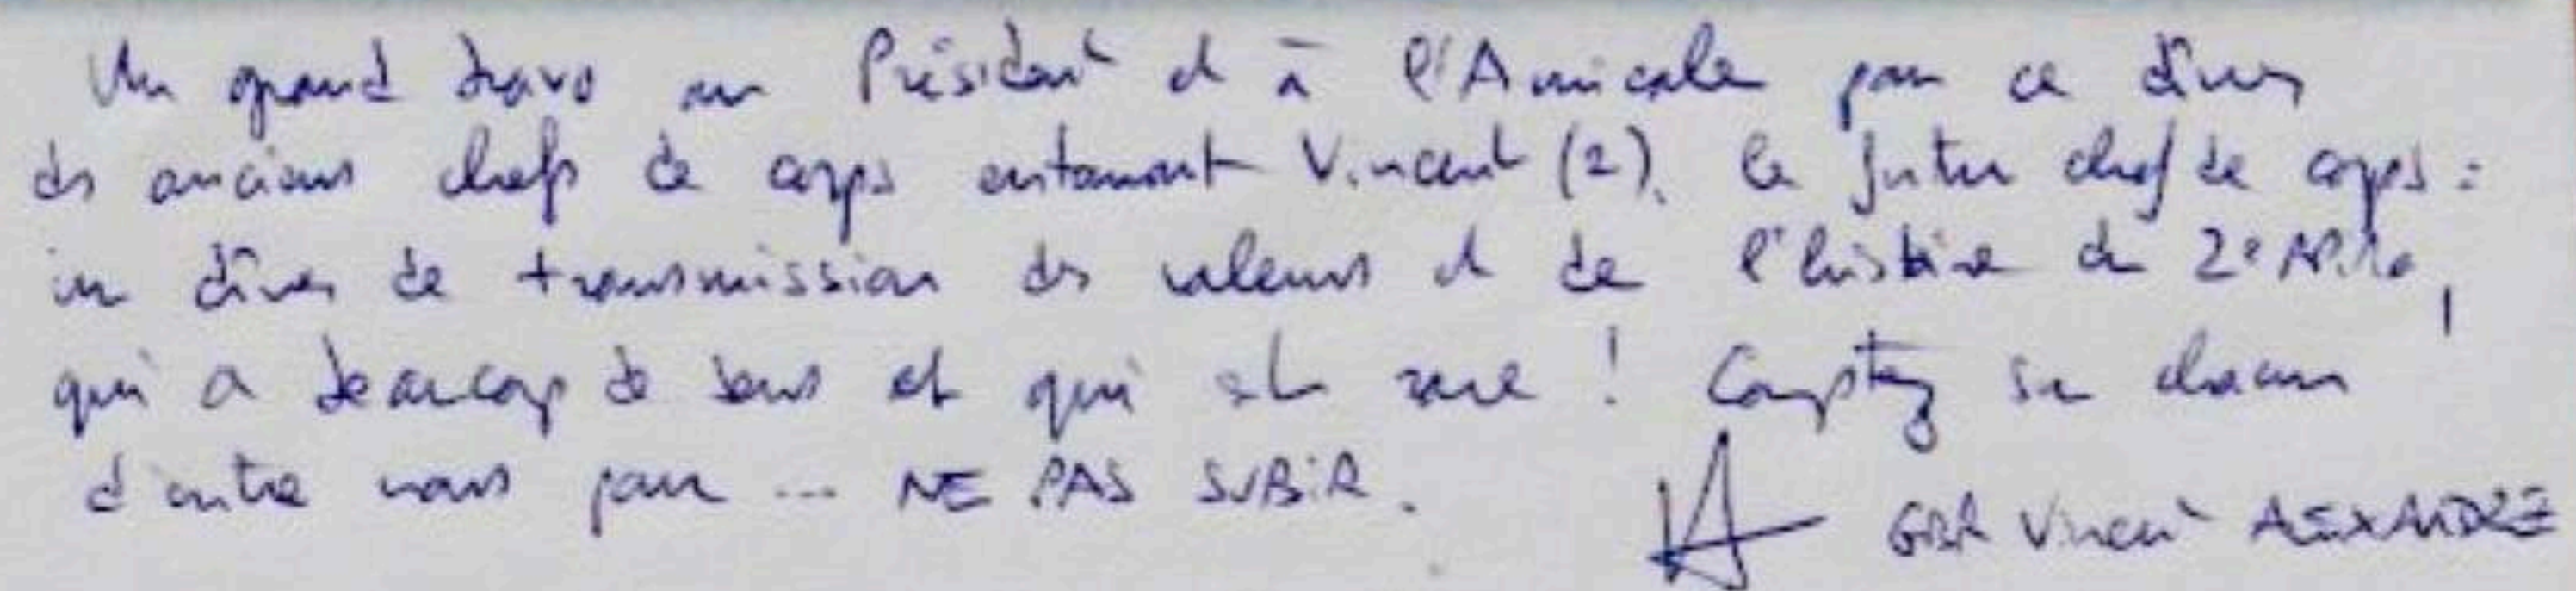 Un grand bravo au Président et à l'Amicale pour ce dîner
des anciens chefs de corps entourant Vincent (2), le futur chef de corps :
un dîner de transmission des valeurs et de l'histoire du 2e
qui a beaucoup de sens et qui est rare ! Comptez sur chacun
d'entre nous pour ... NE PAS SUBIR.
GBR Vincent ALEXANDRE